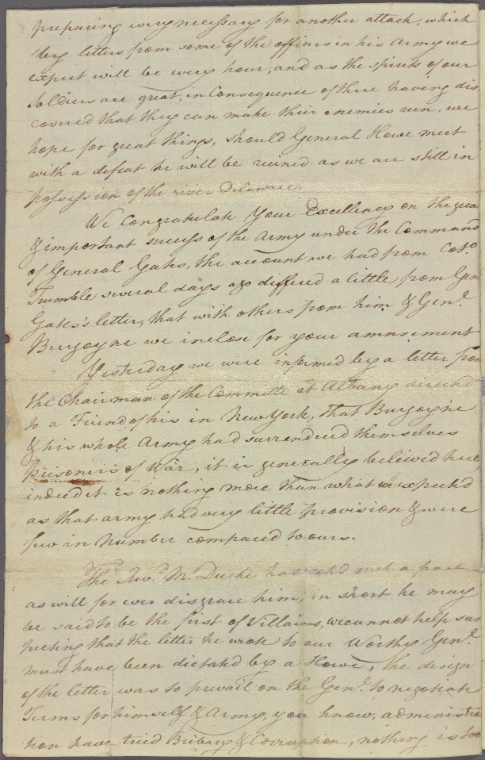 preparing every necessary for another attack, which
by letters from some of the officers in his Army we
expect will be every hour, and as the spirits of our
soldiers are great, in Consequence of there having dis
covered that they can make their enemies run, we
hope for great things, should General Howe meet
with a defeat he will be ruined as we are still in
possession of the river Delaware.
We Congratulate Your Excellency on the great
& important success of the Army under the Command
of General Gates, the account we had from Colo.
Trumble several days ago differed a little from Genl
Gates's letter, that with others from him & Genl.
Burgoyne we inclose for your amusement
Yesterday we were informed by a letter from
the Chairman of the Committe at Albany directed
to a Friend of his in New York, that Burgoyne
& his whole Army had surrendered themselves
prisoners of War, it is generally beleived here
indeed it is nothing more than what we expected
as that army had very little provision & were
few in Number compared to ours.
The Revd. Mr. Duché has acted such a part
as will for ever disgrace him, in short he may
be said to be the first of Villains, we cannot help sus
pecting that the letter he wrote to our Worthy Genl.
must have been dictated by a Howe, the design
of the letter was to prevail on the Genl. to negotiate
Terms for himself & Army, you know, administra
tion have tried Bribery & Corruption, nothing is too